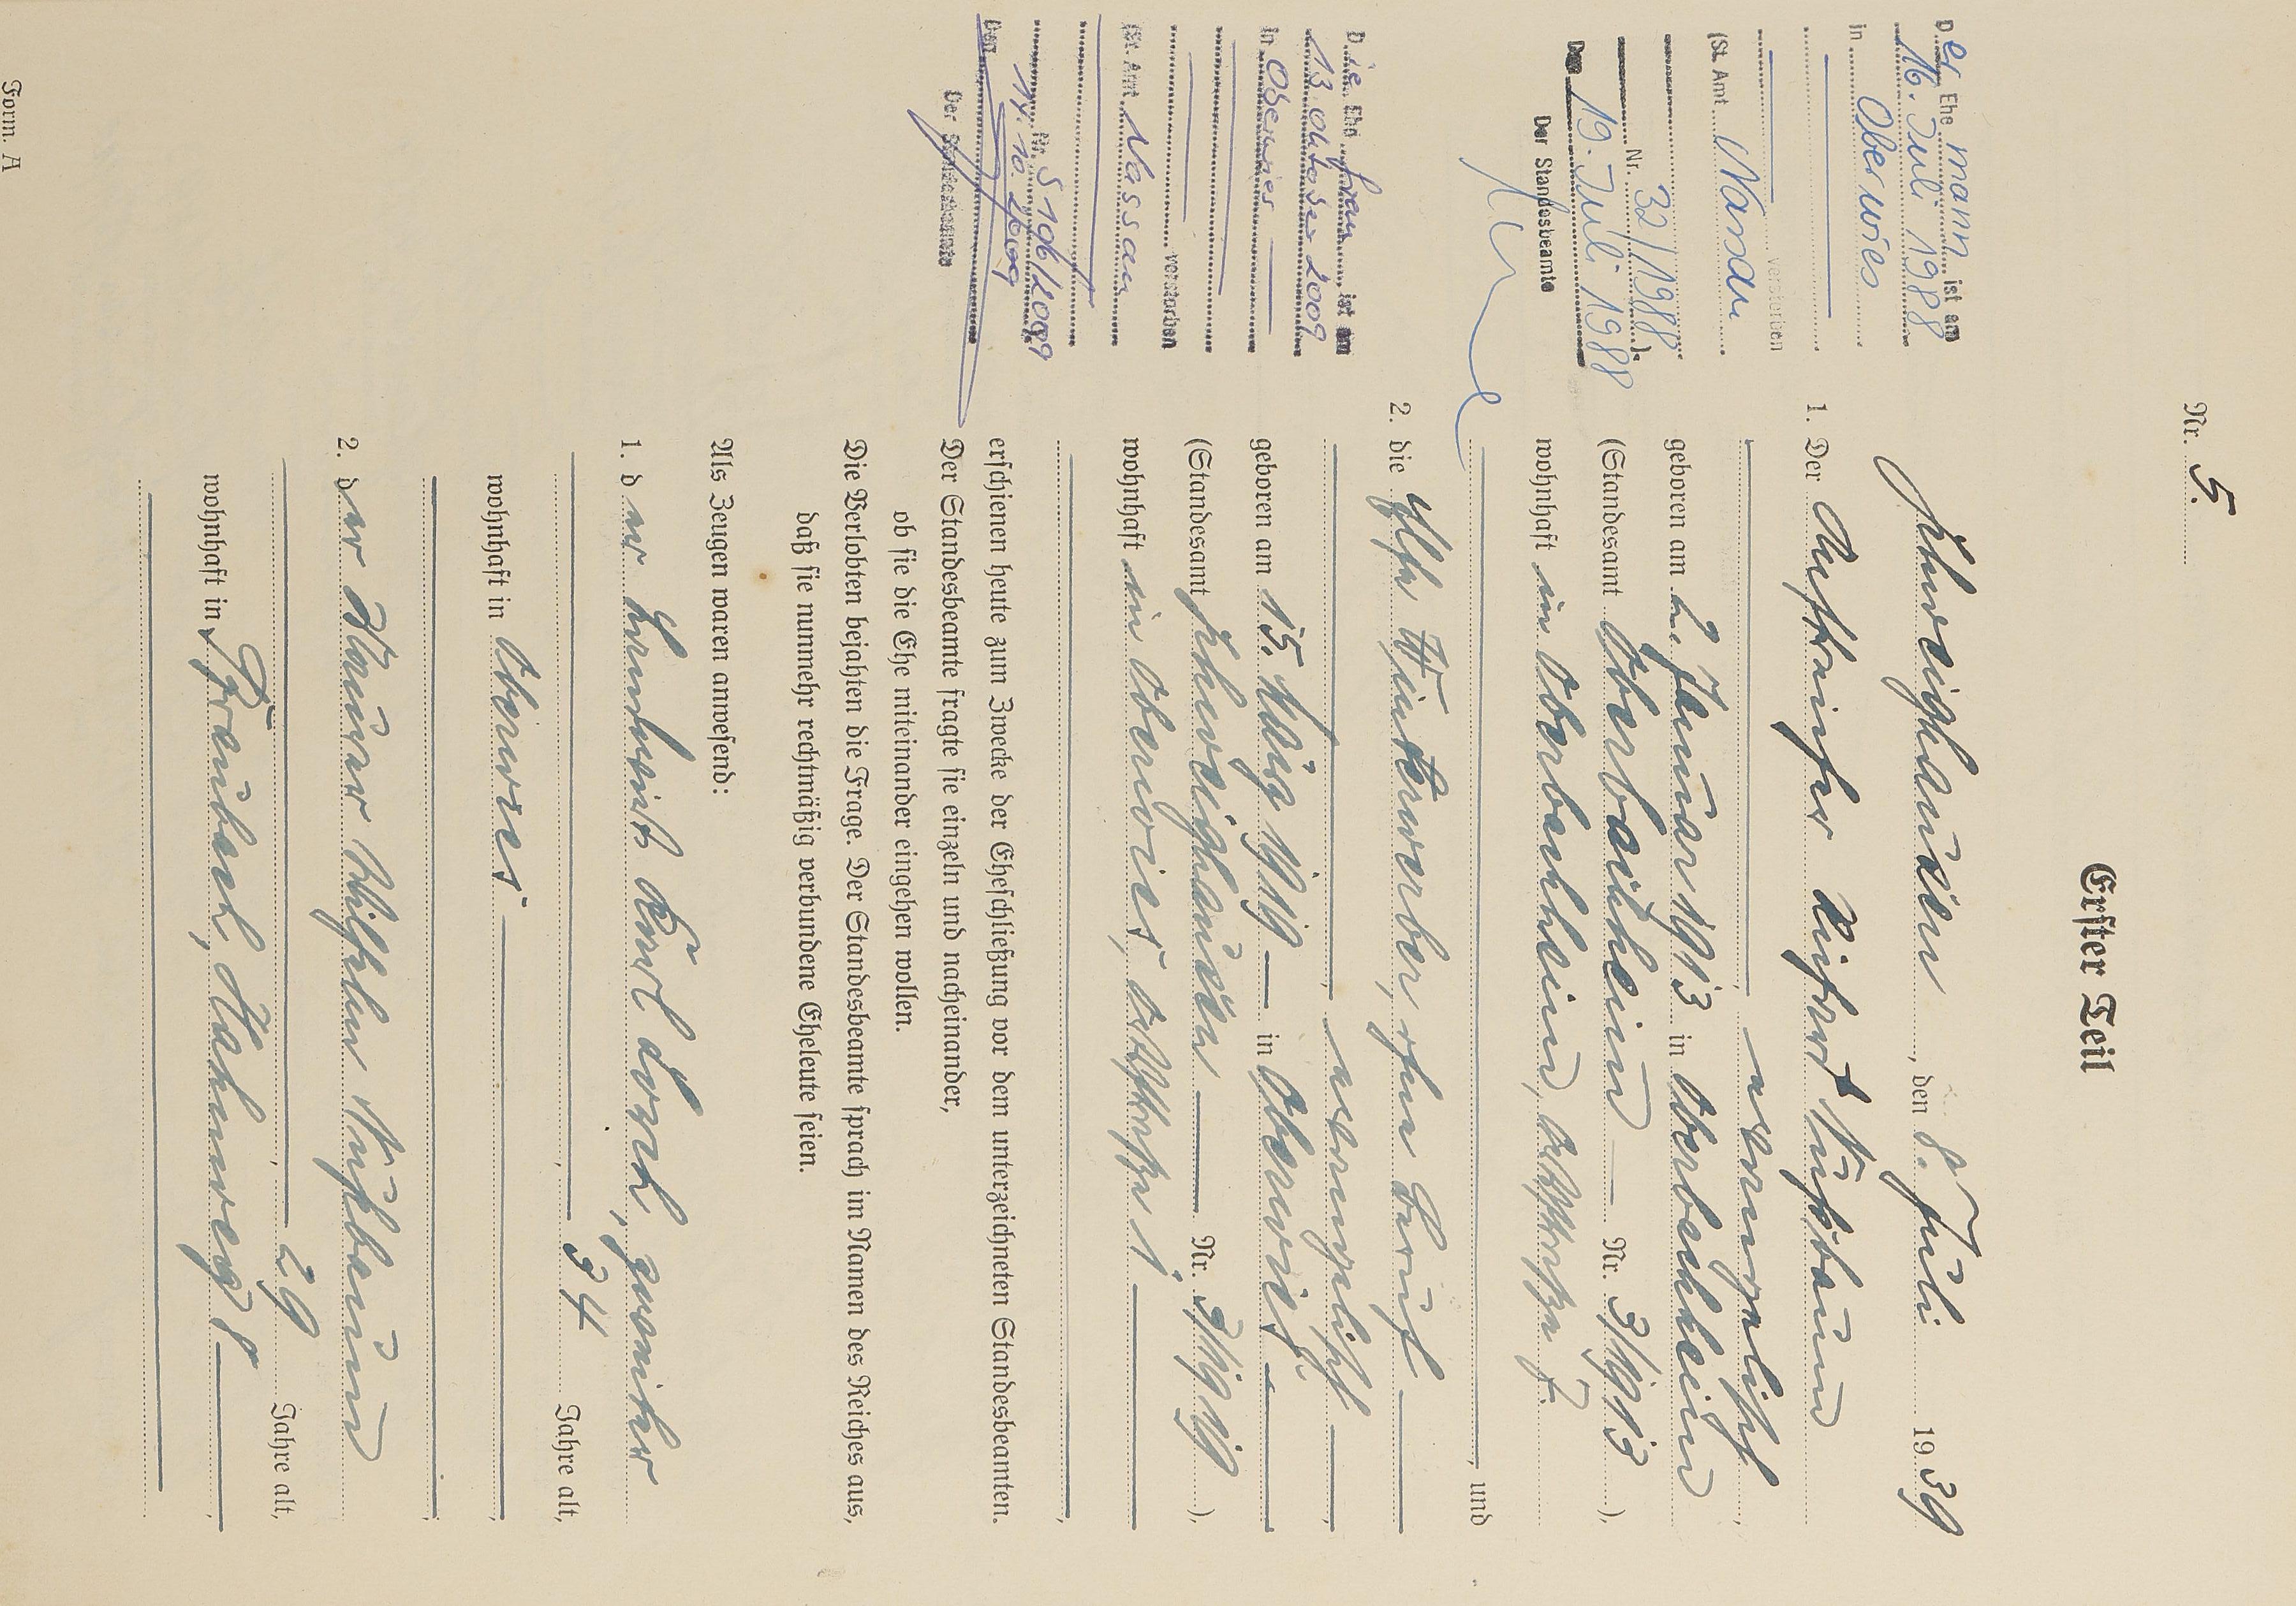 Nr. 5.
Erster Teil
Zimmerschied, den 8. Juli 1939
1. Der Aufseher Richard Nußbaum
evangelisch,
geboren am 2. Januar 1913 in Oberbachheim
(Standesamt Oberbachheim Nr. 3/1913),
wohnhaft in Oberbachheim, Ortsstraße 7.
, und
2. die Ella Winterwerber, ohne Beruf
evangelisch
geboren am 15. März 1919 in Oberwies
(Standesamt Nr. 3/1919),
wohnhaft in Oberwies, Ortsstraße 1.
erschienen heute zum Zwecke der Eheschließung vor dem unterzeichneten Standesbeamten.
Der Standesbeamte fragte sie einzeln und nacheinander,
ob sie die Ehe miteinander eingehen wollen.
Die Verlobten bejahten die Frage. Der Standesbeamte sprach im Namen des Reiches aus,
daß sie nunmehr rechtmäßig verbundene Eheleute seien.
Als Zeugen waren anwesend:
1. der Landwirt Karl
34 Jahre alt,
wohnhaft in Oberwies
2. der Maurer Wilhelm Nußbaum
29 Jahre alt,
wohnhaft in Braubach, Hahnweg 8
Der Ehemann ist am
16. Juli 1988
in Oberwies
verstorben
(St. Amt Nassau
Nr. 32/1988).
Den 19. Juli 1988
Der Standesbeamte
Die Ehefrau ist am
13. Oktober 2009
in Oberwies
verstorben
(St. Amt Nassau
Nr. S 106/2009
Den 14.10.2009
Der Standesbeamte
Form. A